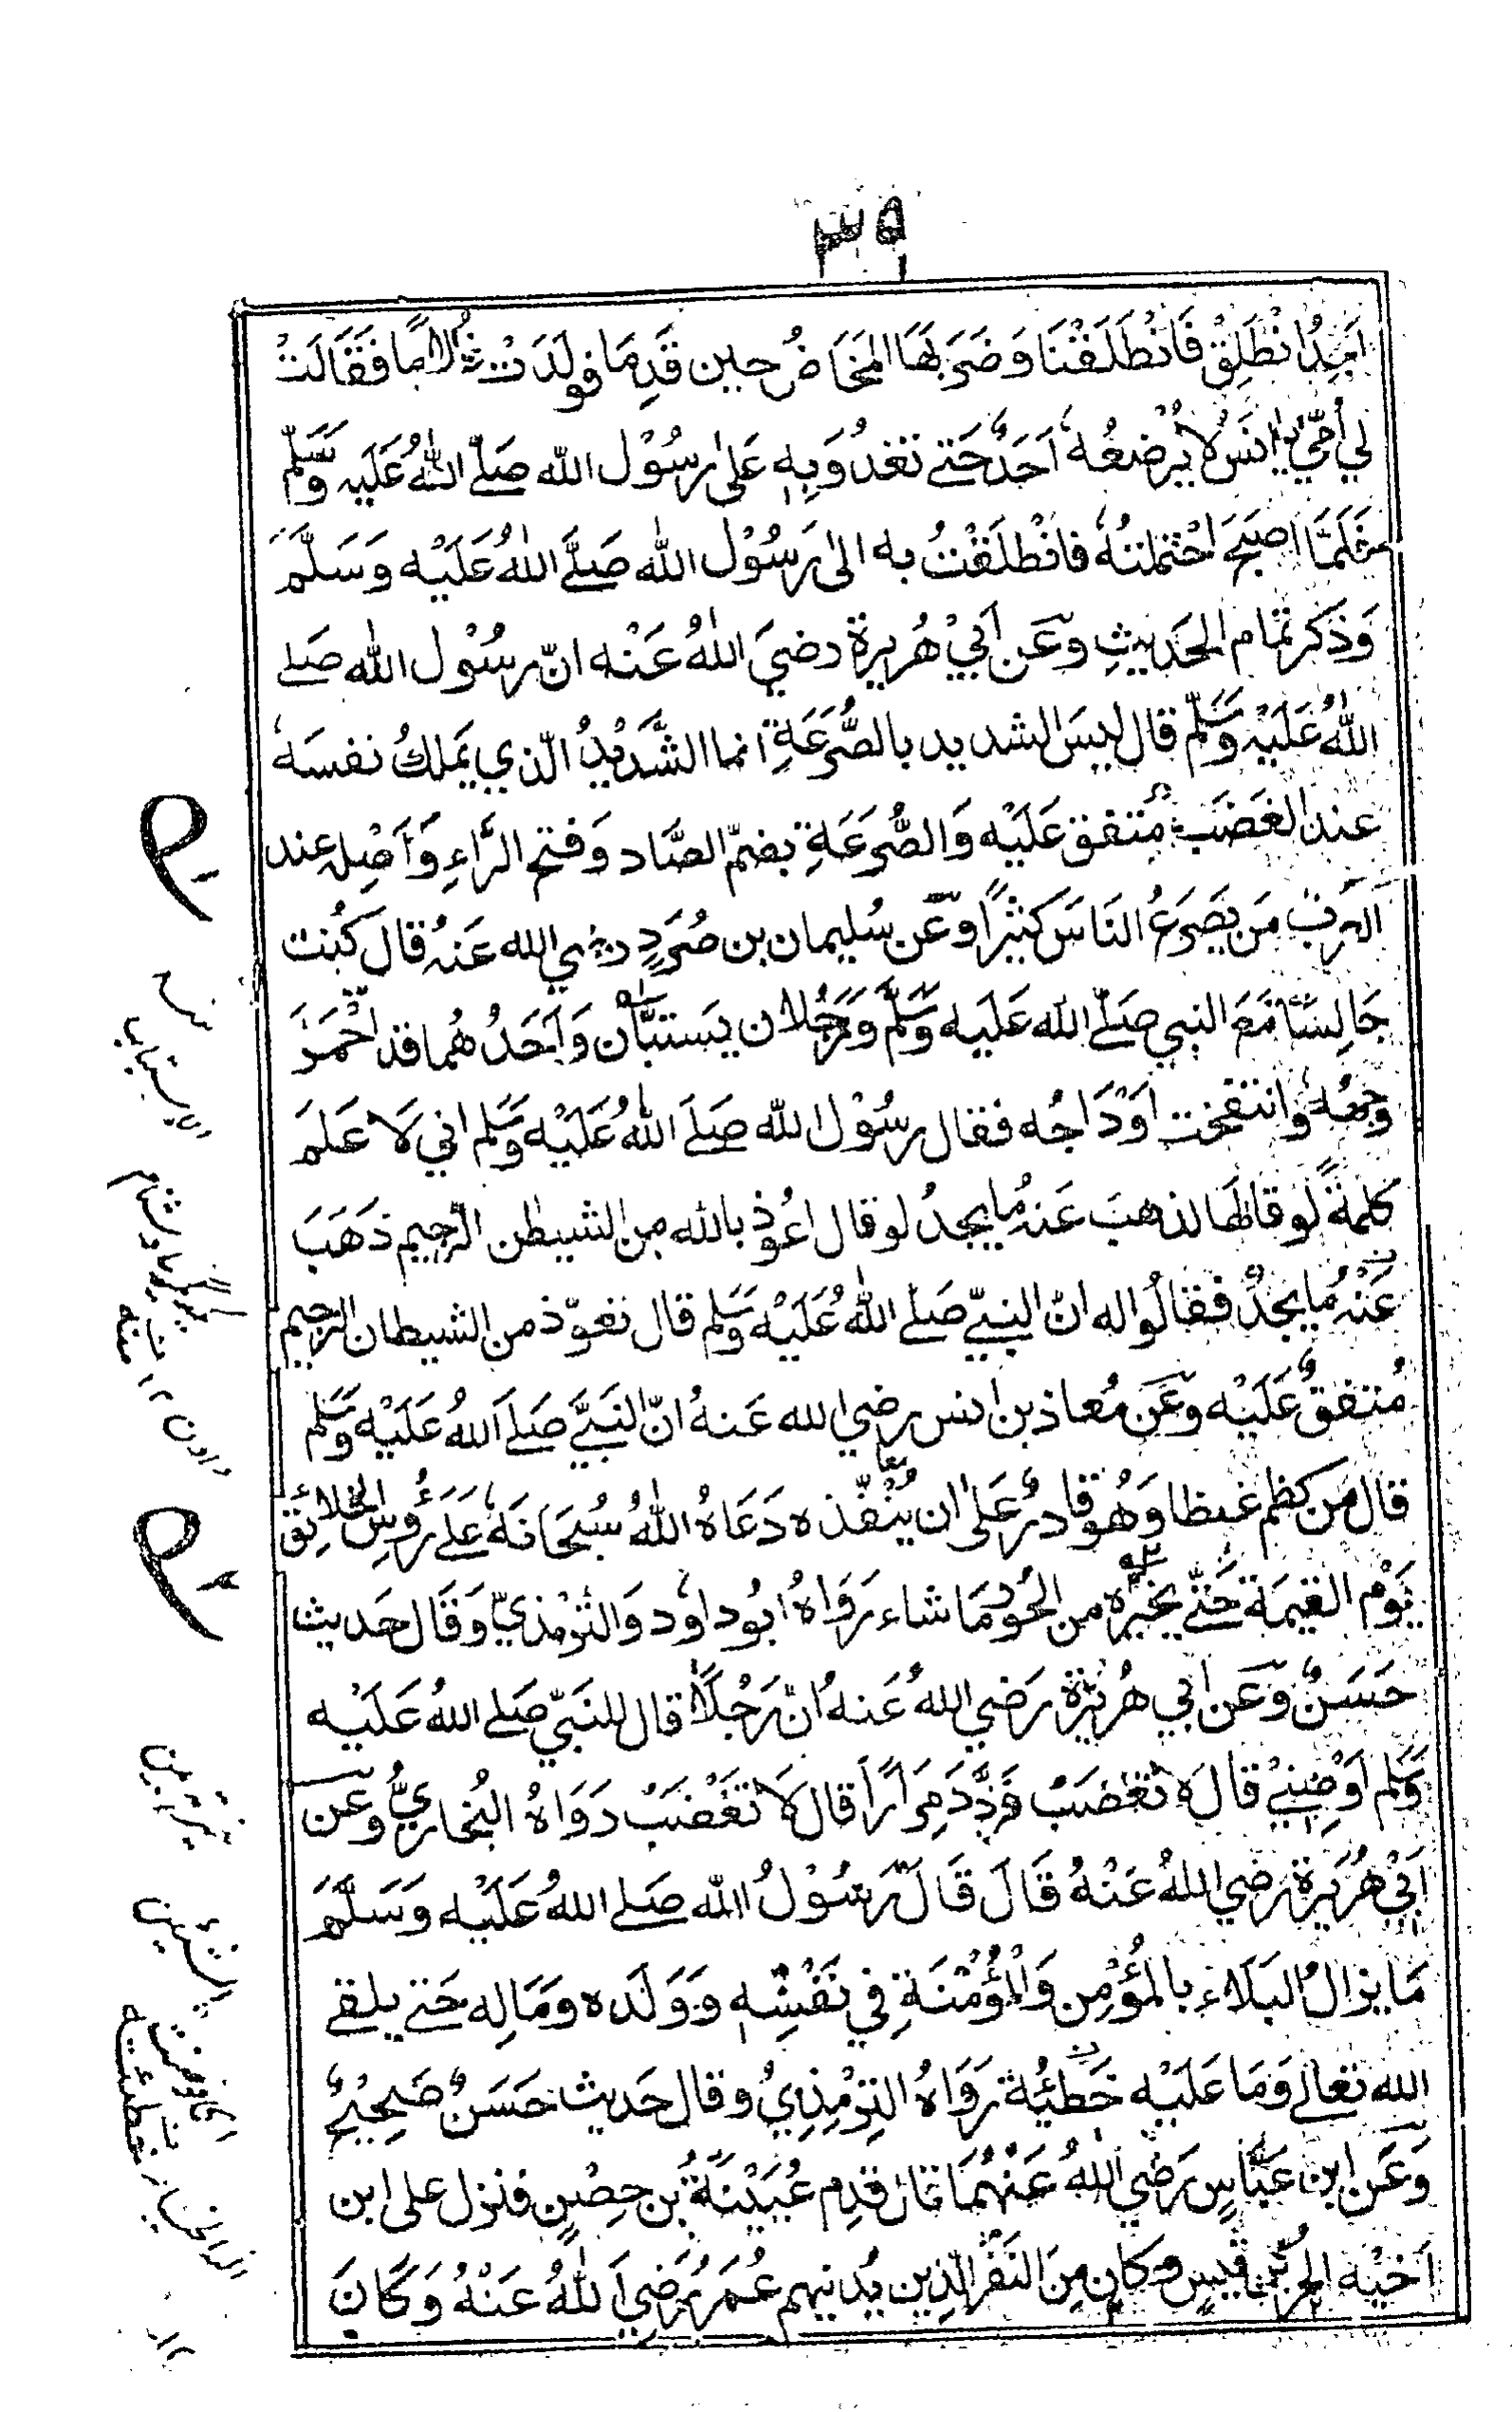 ٣٥
اجد انْطَلِقْ فَانْطَلَقْنَا وَضَرَبَهَا المَخَاضُ حين قَدِمَا فولَدَتْ غُلامًا فَقَالَتْ
لي أُمّي يا انَس لا يُرْضِعُهُ اَحَدٌ حَتے تغدُوَ بِهٖ عَلىٰ رسُوْل الله صَلّے اللهُ عَلَيه وَسَلَّم
فَلَمَّا اصبَحَ احْتملتُهُ فانْطلَقْتُ به الىٰ رَسُوْل الله صَلَّے اللهُ عَلَيْه وَسَلَّمَ
وَذكر تمام الحَديثِ وعَن اَبيْ هُريرة رضيَ اللهُ عَنْه انّ رسُوْل الله صَلے
اللهُ عَلَيْه وَسَلَّم قال ليسَ الشديد بالصُّرَعَةِ انما الشَّدِيْدُ الّذي يَملكُ نفسَهٗ
عند الغَضَب مُتفق عَلَيْه وَالصُّرَعَةِ بضمّ الصَّاد وَفتح الرَّاءِ وَاَصْله عند
العَرَب مَن يَصرَعُ النَاسَ كَثيْرًا وعَن سُليمان بن صُرَدٍ رضي الله عَنهُ قال كُنت
جَالِسًا مَعَ النبي صَلّے الله عَليه وَسَلَّم وَرَجُلان يَستبَّان وَاَحَدُهُما قد احْمَرَّ
وَجهُهٗ وانتفخت اوْدَاجُه فقال رسُوْل الله صَلَے اللهُ عَلَيْه وَسَلم اني لَا علَم
كلمةً لو قالها لذهبَ عَنهُ ما يجدُ لو قال اعُوذ بالله من الشيطٰن الرّجيم ذهَبَ
عَنْهُ ما يجدُ فقالُوا له انّ النبيّ صَلے اللهُ عَلَيْه وَسَلم قال تعوّذ من الشيطان الرجيم
مُتفقٌ عَلَيْه وعَن مُعاذ بن انس رضي الله عَنهُ انّ النَبيَّ صَلَے اللهُ عَلَيْه وَسَلم
قال مَن كظم غيظا وَهُو قادرٌ عَلى ان يُنْفّذه دَعَاهُ اللهُ سُبحَانَهٗ عَلے رؤُسِ الخلائق
يَوْم القيمَة حَتّے يخيّره من الحُوْر مَا شاء رَوَاهُ ابُو داوٗد وَالترْمذيّ وَقَال حَديث
حَسَنٌ وعَن ابي هُريْرَة رَضي اللهُ عَنهُ انّ رَجُلًا قال للنَبيّ صَلے اللهُ عَلَيْه
وَسَلم اَوْصِنيْ قالَ لا تغضَبْ فَرَدَّدَ مِرَارًا قال لَا تَغْضَبْ رَوَاهُ البُخاريُّ وعَن
اَبيْ هُرَيْرَة رَضي اللهُ عَنْهُ قَالَ قَالَ رَسُوْلُ الله صَلے اللهُ عَلَيْه وَسَلَّمَ
مَا يزالُ البَلَاء بالمُؤْمِن وَالْمُؤْمنَةِ في نَفْسِهٖ وَوَلَده ومَالِه حَتے يلقے
الله تعالے وَمَا عَلَيْه خَطْيْئَة رَوَاهُ التِرْمِذِيُ وقال حَديث حَسَنٌ صَحِيْحٌ
وَعَن ابن عَبَّاسٍ رَضي اللهُ عَنْهُمَا قال قدِم عُيَيْنَةُ بْن حِصْنٍ فنزل على ابن
اَخيْه الحُرّ بن قَيسٍ وكان مِنَ النفَر الذين يُدنيهم عُمَر رَضي اللهُ عَنْهُ وَكَانَ